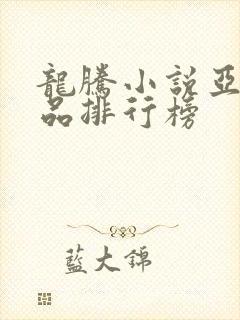 龍騰小說亞
品排行榜
藍大錦